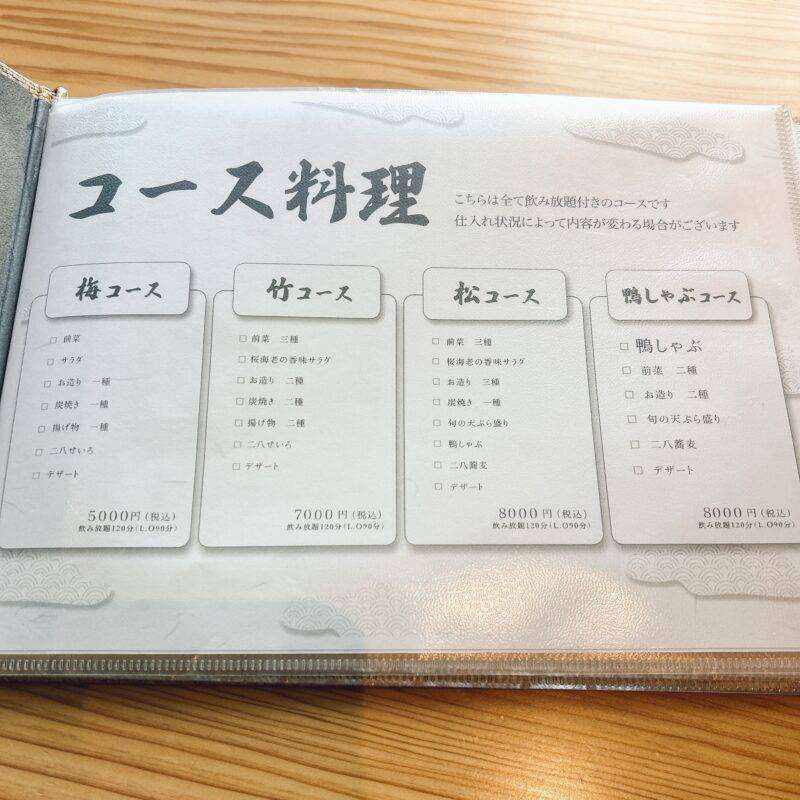 コース料理
こちらは全て飲み放題付きのコースです
仕入れ状況によって内容が変わる場合がございます
梅コース
□ 前菜
□ サラダ
□ お造り 一種
□ 炭焼き 一種
□ 揚げ物 一種
□ 二八せいろ
□ デザート
5000円(税込)
飲み放題120分(L.O90分)
竹コース
□ 前菜 三種
□ 桜海老の香味サラダ
□ お造り 二種
□ 炭焼き 二種
□ 揚げ物 二種
□ 二八せいろ
□ デザート
7000円(税込)
飲み放題120分(L.O90分)
松コース
□ 前菜 三種
□ 桜海老の香味サラダ
□ お造り 三種
□ 炭焼き 一種
□ 旬の天ぷら盛り
□ 鴨しゃぶ
□ 二八蕎麦
□ デザート
8000円(税込)
飲み放題120分(L.O90分)
鴨しゃぶコース
□ 鴨しゃぶ
□ 前菜 二種
□ お造り 二種
□ 旬の天ぷら盛り
□ 二八蕎麦
□ デザート
8000円(税込)
飲み放題120分(L.O90分)